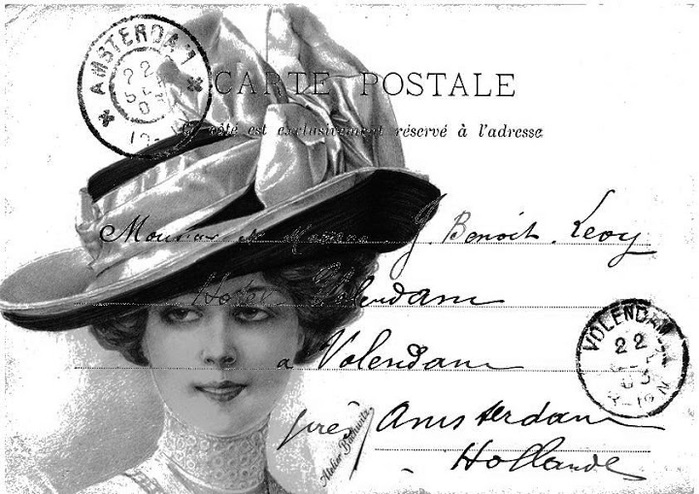 AMSTERDAM
22
CARTE POSTALE
côté est exclusivement réservé à l'adresse
Monsieur et Madame J. Benoit. Levy
Hotel Volendam
a Volendam
près Amsterdam
Hollande
VOLENDAM
22
03
Atelier Bichwitz